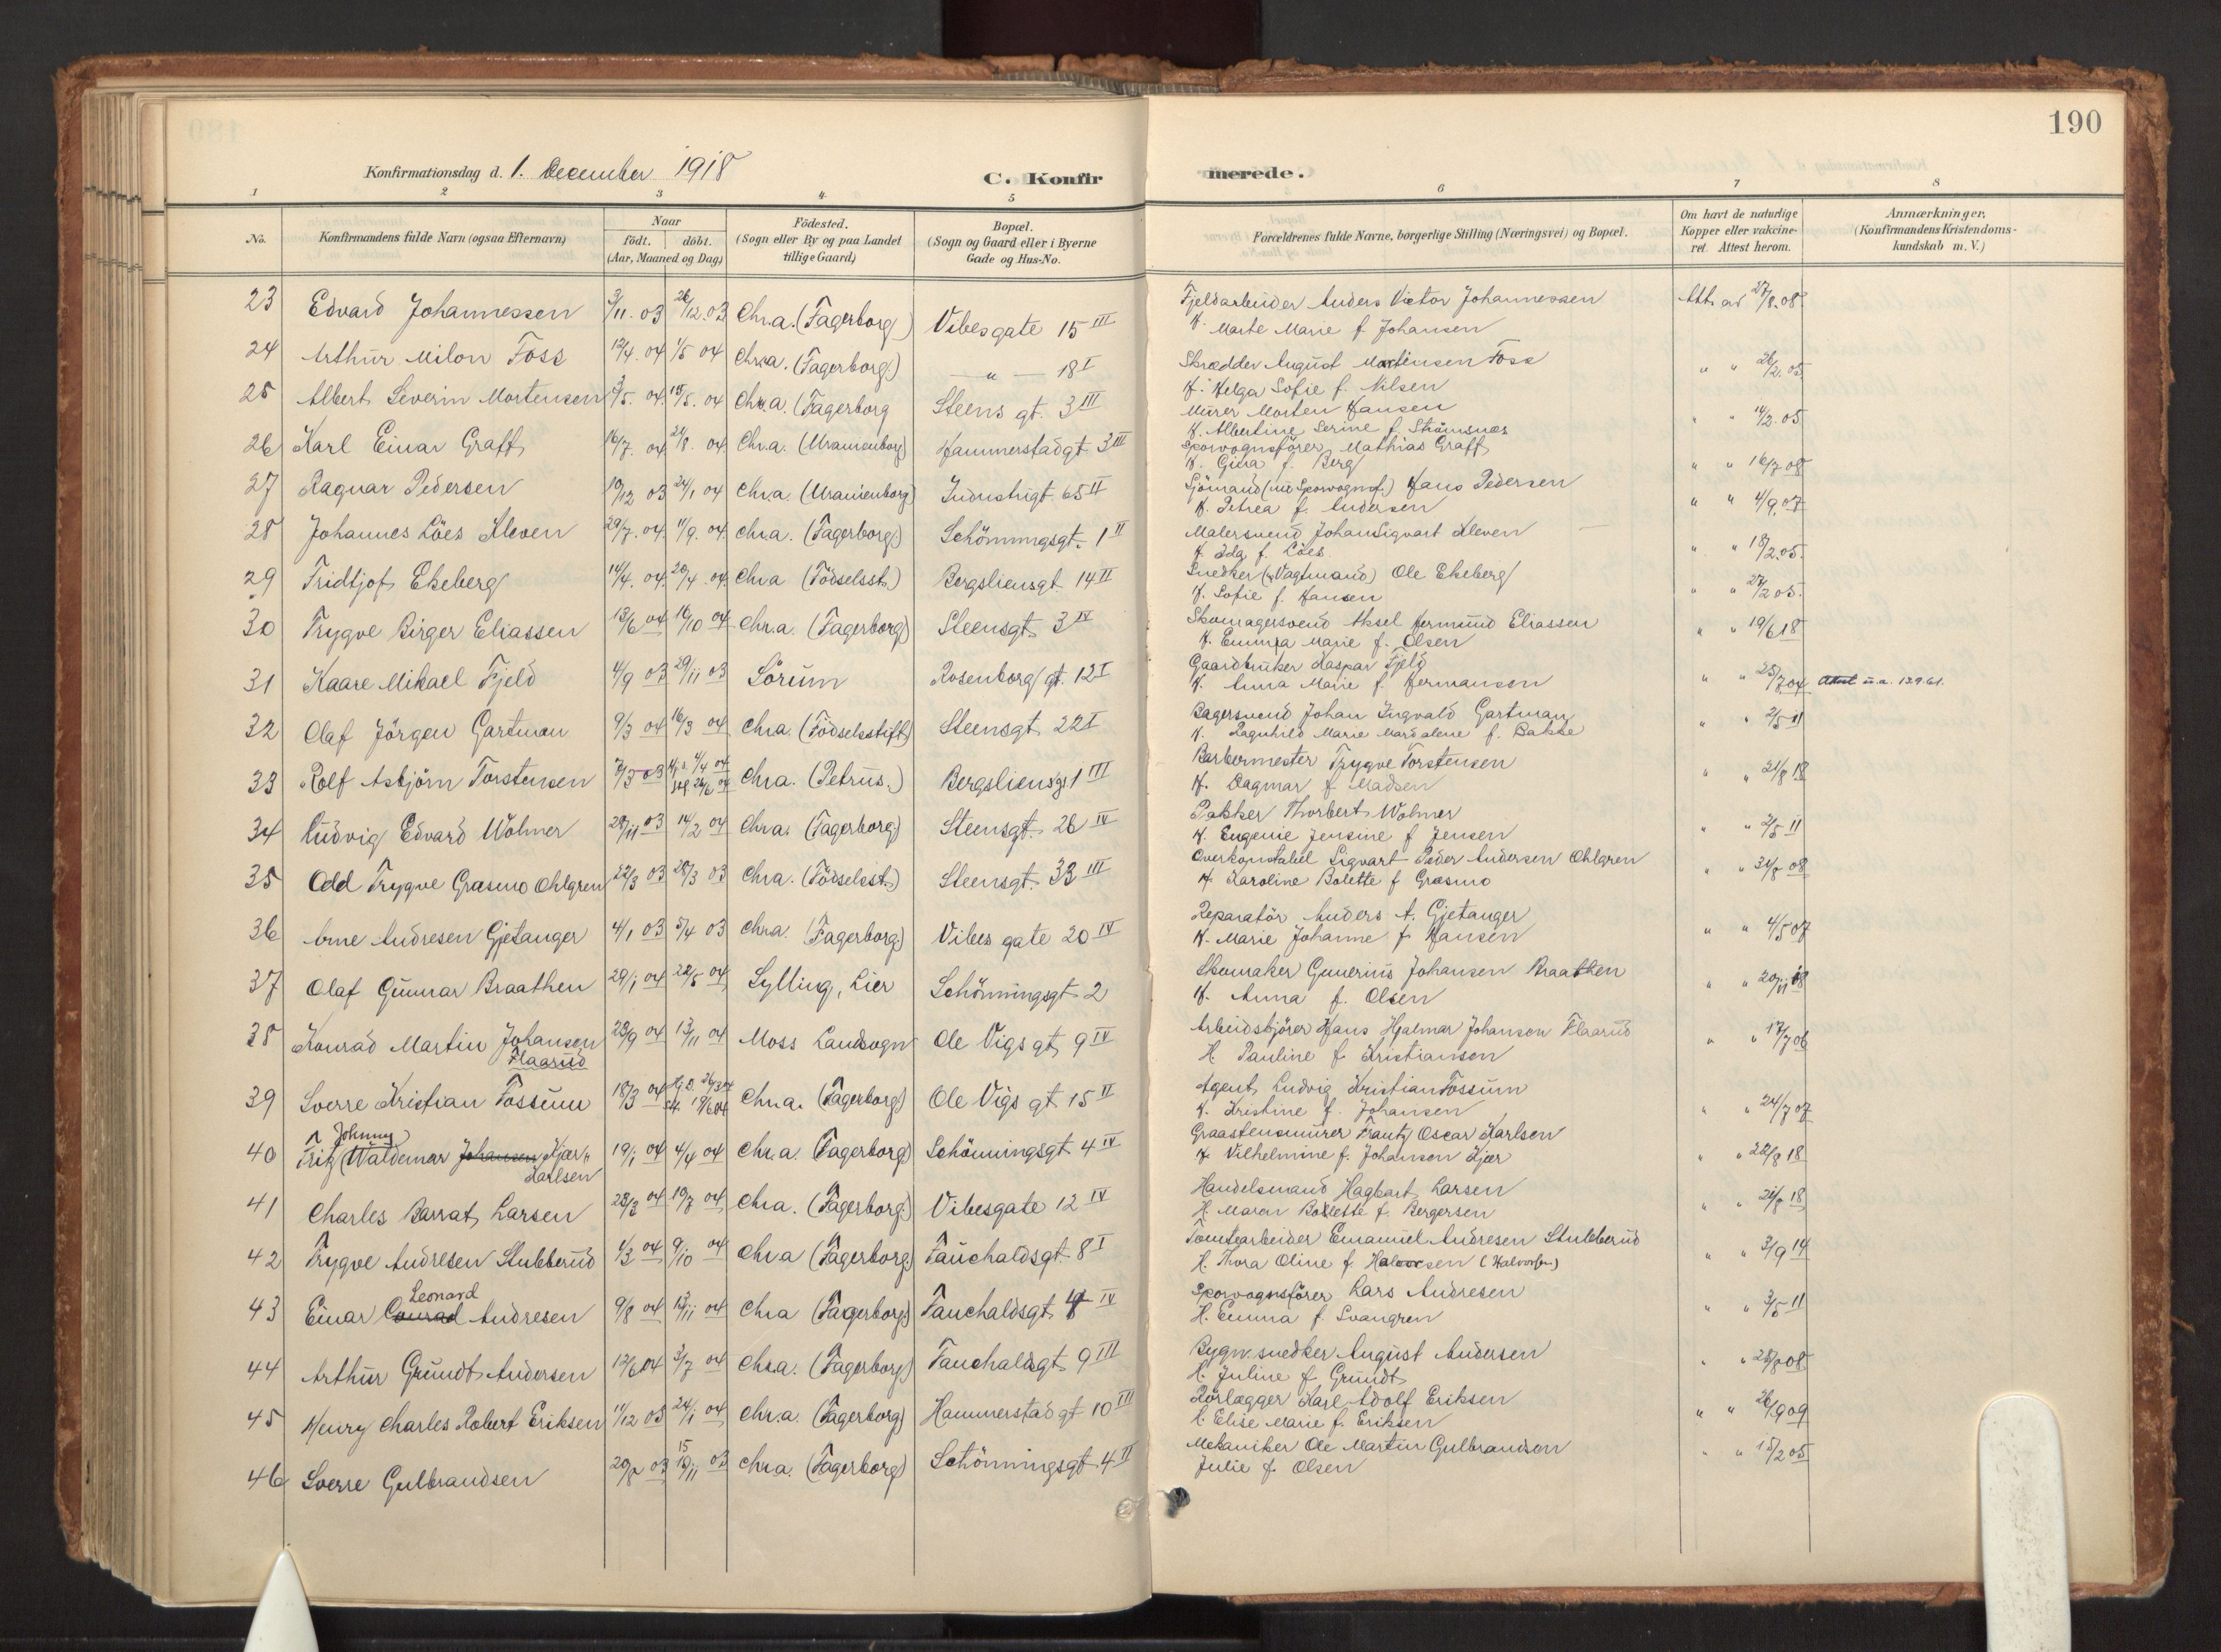 190
Konfirmationsdag d. 1. December 1918
C. Konfirmerede.
1 2 3 4 5 6 7 8
No. Konfirmandens fulde Navn (ogsaa Efternavn) Naar födt. döbt. (Aar, Maaned og Dag) Födested. (Sogn eller By og paa Landet tillige Gaard) Bopæl. (Sogn og Gaard eller i Byerne Gade og Hus-No. Forældrenes fulde Navne, borgerlige Stilling (Næringsvei) og Bopæl. Om havt de naturlige Kopper eller vakcineret. Attest herom. Anmærkninger, (Konfirmandens Kristendomskundskab m. V.)
23 Edvard Johannessen 3/11. 03 26/12. 03 Chr.a. (Fagerborg) Vibesgate 15 III Fjeldarbeider Anders Victor Johannessen Att. av 27/8. 08
H. Marte Marie f. Johansen
24 Arthur Milon Foss 12/4. 04 1/5 04 Chr.a. (Fagerborg) — " — 18 I Skrædder August Mortensen Foss " " 26/2. 05
H. Helga Sofie f. Nilsen
25 Albert Severin Mortensen 3/5. 04. 15/5. 04 Chr.a. (Fagerborg Steens gt. 3 III Murer Morten Hansen " " 14/2. 05
H. Albertine Serine f. Strömsnæs
26 Karl Einar Graff 16/7. 04 21/8. 04 Chr.a. (Uranienborg) Hammerstadgt 3 III Sporvognsförer Mathias Graff " " 16/7 08
H. Gina f. Berg
27 Ragnar Pedersen 19/12 03 24/1 04 Chr.a. (Uranienborg) Industrigt. 65 II Sjömand (nu Sporvognsf.) Hans Pedersen " " 4/9. 07
H. Petrea f. Andersen
28 Johannes Löes Kleven 29/7. 04. 11/9. 04 Chr.a. (Fagerborg) Schönningsgt. 1 II Malersvend Johan Sigvart Kleven " " 18/2. 05.
H. Ida f. Löes.
29 Fridtjof Ekeberg 14/4. 04. 20/4. 04. Chr.a (Födselsst.) Bergsliensgt. 14 II Snedker (Vagtmand) Ole Ekeberg " " 27/2 05.
H. Sofie f. Hansen
30 Trygve Birger Eliassen 13/6 04 16/10 04 Chr.a. (Fagerborg) Steensgt. 3 IV Skomagersvend Aksel Hermund Eliassen " " 19/6 18
H. Emma Marie f. Olsen
31 Kaare Mikael Fjeld 4/9 03 29/11 03 Sörum Rosenborg gt. 12 I Gaardbruker Kaspar Fjeld " " 25/7 04 Attest u.a. 13.9.61.
H. Anna Marie f. Hermansen
32 Olaf Jörgen Gartman 9/3 04 16/3 04 Chr.a. (Födselsstift) Steensgt. 22 I Bagersvend Johan Ingvald Gartman " " 2/5 11
H. Ragnhild Marie Magdalene f. Bakke
33 Rolf Asbjörn Torstensen Chr.a. (Petrus.) Bergsliensg. 1 III Barbermester Trygve Torstensen " " 21/8 18
H. Dagmar f. Madsen
34 Ludvig Edvard Wolmer 28/11 03 14/2 04 Chr.a. (Fagerborg) Steensgt. 26 IV Pakker Thorbert Wolmer " " 2/5 11
H. Eugenie Jensine f. Jensen
35 Odd Trygve Græsmo Ohlgren 22/3 03 28/3 03 Chr.a. (Födselsst.) Steensgt. 33 III Overkonstabel Sigvart Peder Andersen Ohlgren " " 31/8 08
H. Karoline Bolette f. Græsmo
36 Arne Andresen Gjetanger 4/1 03 5/4 03 Chr.a. (Fagerborg) Vibes gate 20 IV Reparatör Anders A. Gjetanger " " 4/5 07
H. Marie Johanne f. Hansen
37 Olaf Gunnar Braathen 29/1 04 22/5 04 Sylling, Lier Schönningsgt. 2 Skomaker Gunerius Johansen Braathen " " 20/11 18
H. Anna f. Olsen
38 Konrad Martin Johansen 23/9 04 13/11 04 Moss Landsogn Ole Vigs gt. 9 IV Arbeidskjörer Hans Hjalmar Johanson Flaarud " " 17/7 06
Flaarud H. Pauline f. Kristianson
39 Sverre Kristian Fossum 18/3 04 Chr.a. (Fagerborg) Ole Vigs gt 15 II Agent Ludvig Kristian Fossum " " 24/7 07
H. Kristine f. Johansen
Johnny
40 Fritz Waldemar Johansen Kjær 19/1 04 4/4 04 Chr.a (Fagerborg) Schönningsgt 4 IV Graastensmurer Frantz Oscar Karlsen " " 22/8 18
Karlsen H. Vilhelmine f. Johansen Kjær
41 Charles Barrat Larsen 23/3 04 10/7 04 Chr.a. (Fagerborg) Vibesgate 12 IV Handelsmand Hagbart Larsen " " 21/8 18
H. Maren Bolette f. Bergersen
42 Trygve Andresen Stubberud 1/3 04 9/10 04 Chr.a (Fagerborg) Fauchaldsgt. 8 I Tomtearbeider Emanuel Andresen Stubberud " " 3/9 14
H. Thora Oline f. Halvorsen (Halvorsen)
Leonard
43 Einar Conrad Andresen 9/8 04 13/11 04 Chr.a (Fagerborg) Fauchaldsgt. 4 IV Sporvognsförer Lars Andresen " " 3/5 11
H. Emma f. Svangren
44 Arthur Grundt Andersen 12/6 04 3/7 04 Chr.a. (Fagerborg) Fauchaldsgt. 9 III Bygn. snedker August Andersen " " 25/8 08
H. Juline f. Grundt
45 Henry Charles Robert Eriksen 11/12 03 24/1 04 Chr.a. (Fagerborg) Hammerstad gt 10 III Rörlægger Karl Adolf Eriksen " " 26/9 09
H. Elise Marie f. Eriksen
46 Sverre Gulbrandsen 20/8 03 15/11 03 Chr.a. (Fagerborg) Schönningsgt 4 II Mekaniker Ole Martin Gulbrandsen " " 15/2 05
Julie f. Olsen